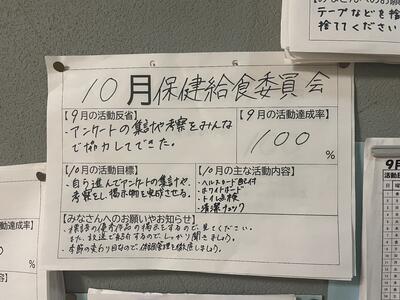 テープなどを捨
捨ててください
10月保健給食委員会
【9月の活動反省】
・アンケートの集計や考察をみんな
で協力してできた。
【9月の活動達成率】
100
%
【10月の活動目標】
・自ら進んでアンケートの集計や、
考察をし、掲示物を完成させる。
【10月の主な活動内容】
・ヘルスカード配付
・ホワイトボード
・トイレ点検
・清潔チェック
【みなさんへのお願いやお知らせ】
・標語の優秀作品の掲示をするので、見てください。
また、放送で紹介するので、しっかり聞きましょう。
・季節の変わり目なので、体調管理を徹底しましょう。
9月
活動